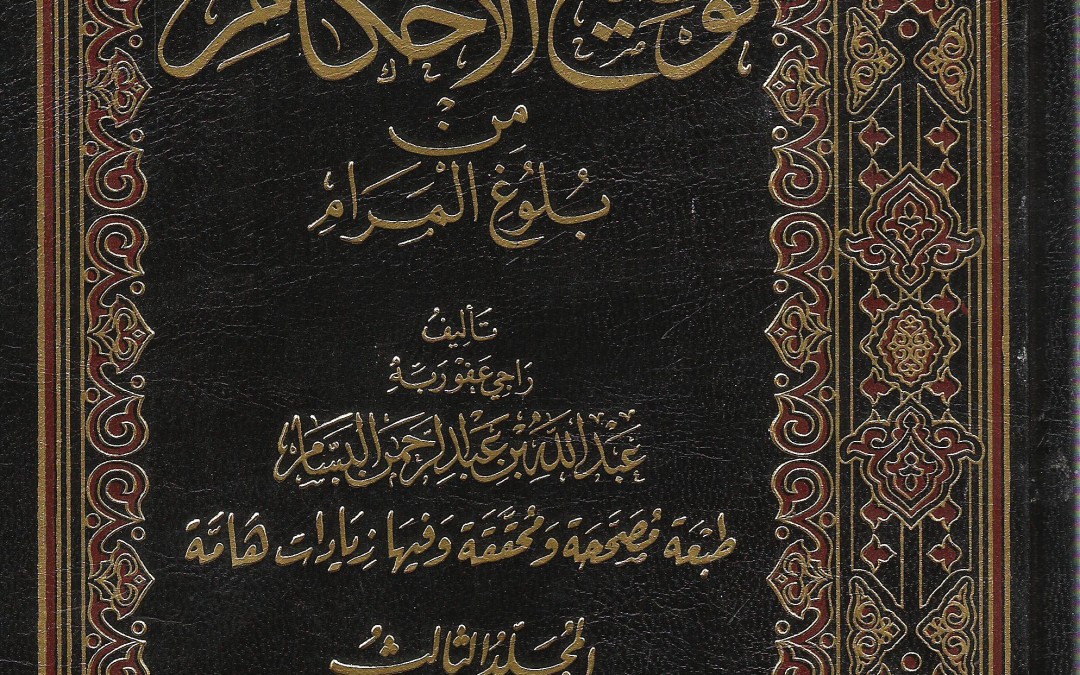 توضيح الأحكام
مِنْ
بُلُوغ المَرَامِ
تَأليفُ
رَاجي عَفْوَ رَبِّهُ
عَبْدُ اللهِ بْن عَبْدِ الرَّحمن البَسَّام
طبْعَة مُصَحَّحَة وَمُحَقَّقَة وَفيهَا زيَادَات هَامَّة
المُجَلَّدُ الثَّالِثُ